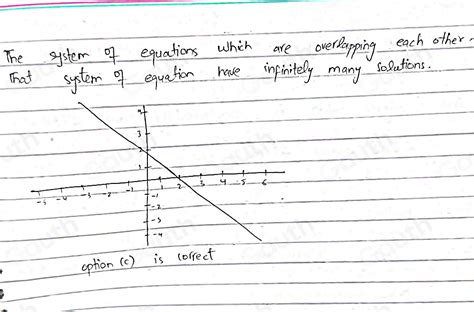 The system of equations which are overlapping each other.
That system of equation have infinitely many solutions.
4
3
2
1
-5 -4 -3 -2 -1 1 2 3 4 5 6
-1
-2
-3
-4
option (c) is correct